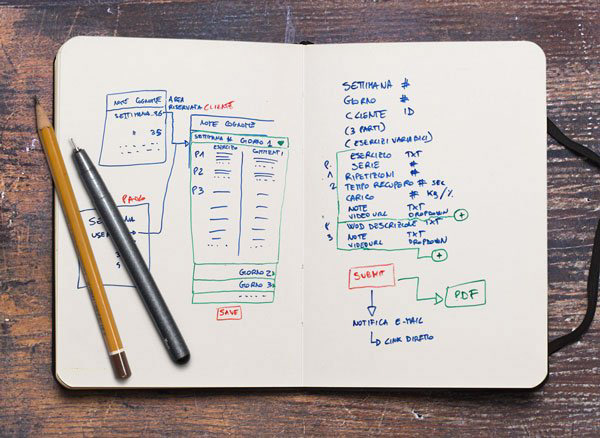 NOME COGNOME
SETTIMANA 36
" 35
AREA
RISERVATA CLIENTE
NOME COGNOME
SETTIMANA # GIORNO 1
ESERCIZIO COMMENTI
P1
P2
P3
GIORNO 2
GIORNO 3
SAVE
PAOLO
SETTIMANA # 
GIORNO #
CLIENTE ID
(3 PARTI)
(ESERCIZI VARIABILI)
P. ESERCIZIO TXT
SERIE #
1 RIPETIZIONI #
2 TEMPO RECUPERO # SEC
CARICO # KG/%
NOTE TXT
VIDEO URL DROPDOWN +
P WOD DESCRIZIONE TXT
3 NOTE TXT
VIDEO URL DROPDOWN
+
SUBMIT
PDF
NOTIFICA E-MAIL
LINK DIRETTO